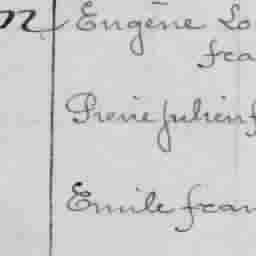 n Eugène Lo
fra
Pierre Julien f
Emile fran